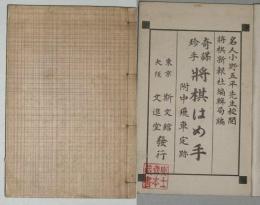 名人小野五平先生校閲
将棋新報社編輯局編
奇謀
珍手
将棋はめ手
附中飛車定跡
東京 斯文館
大阪 文進堂
發行